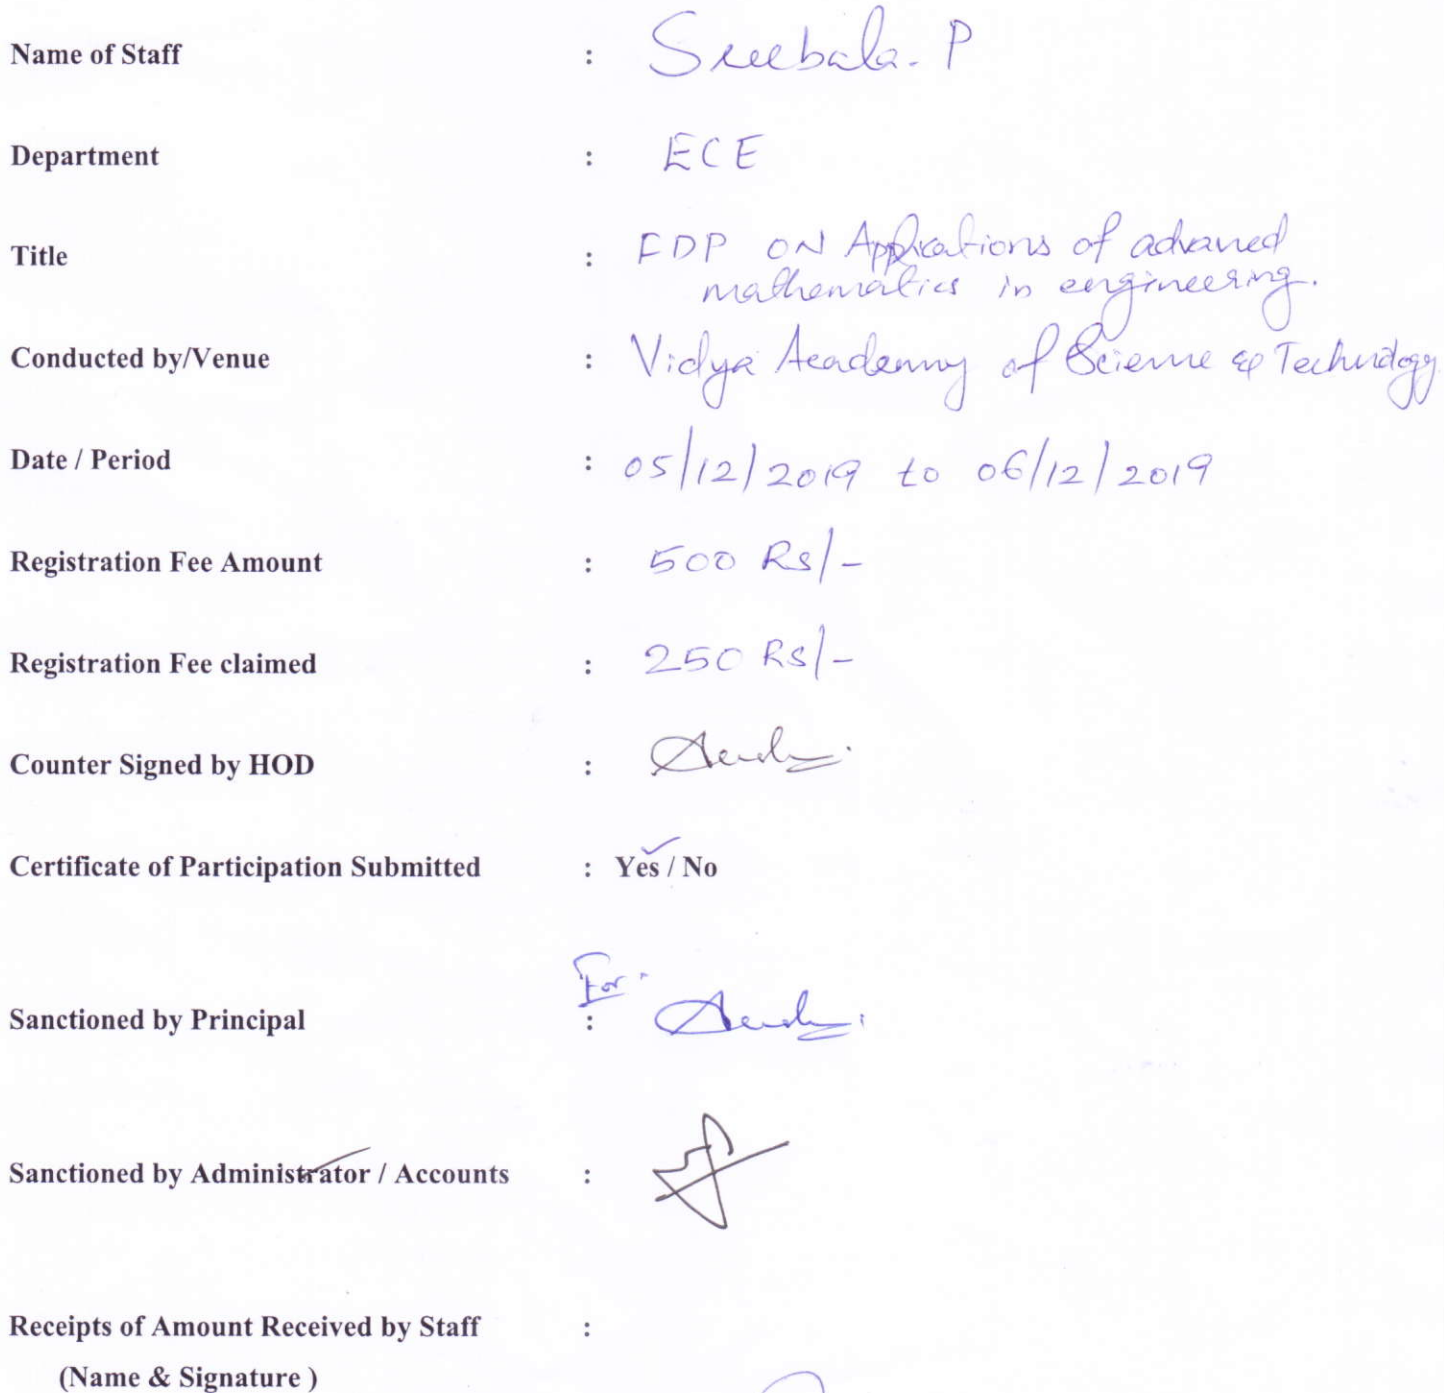 Name of Staff : Sreebala. P
Department : ECE
Title : FDP ON Applications of advanced
mathematics in engineering.
Conducted by/Venue : Vidya Academy of Science & Technology
Date / Period : 05/12/2019 to 06/12/2019
Registration Fee Amount : 500 Rs/-
Registration Fee claimed : 250 Rs/-
Counter Signed by HOD :
Certificate of Participation Submitted : Yes / No
For
Sanctioned by Principal :
Sanctioned by Administrator / Accounts :
Receipts of Amount Received by Staff :
(Name & Signature )